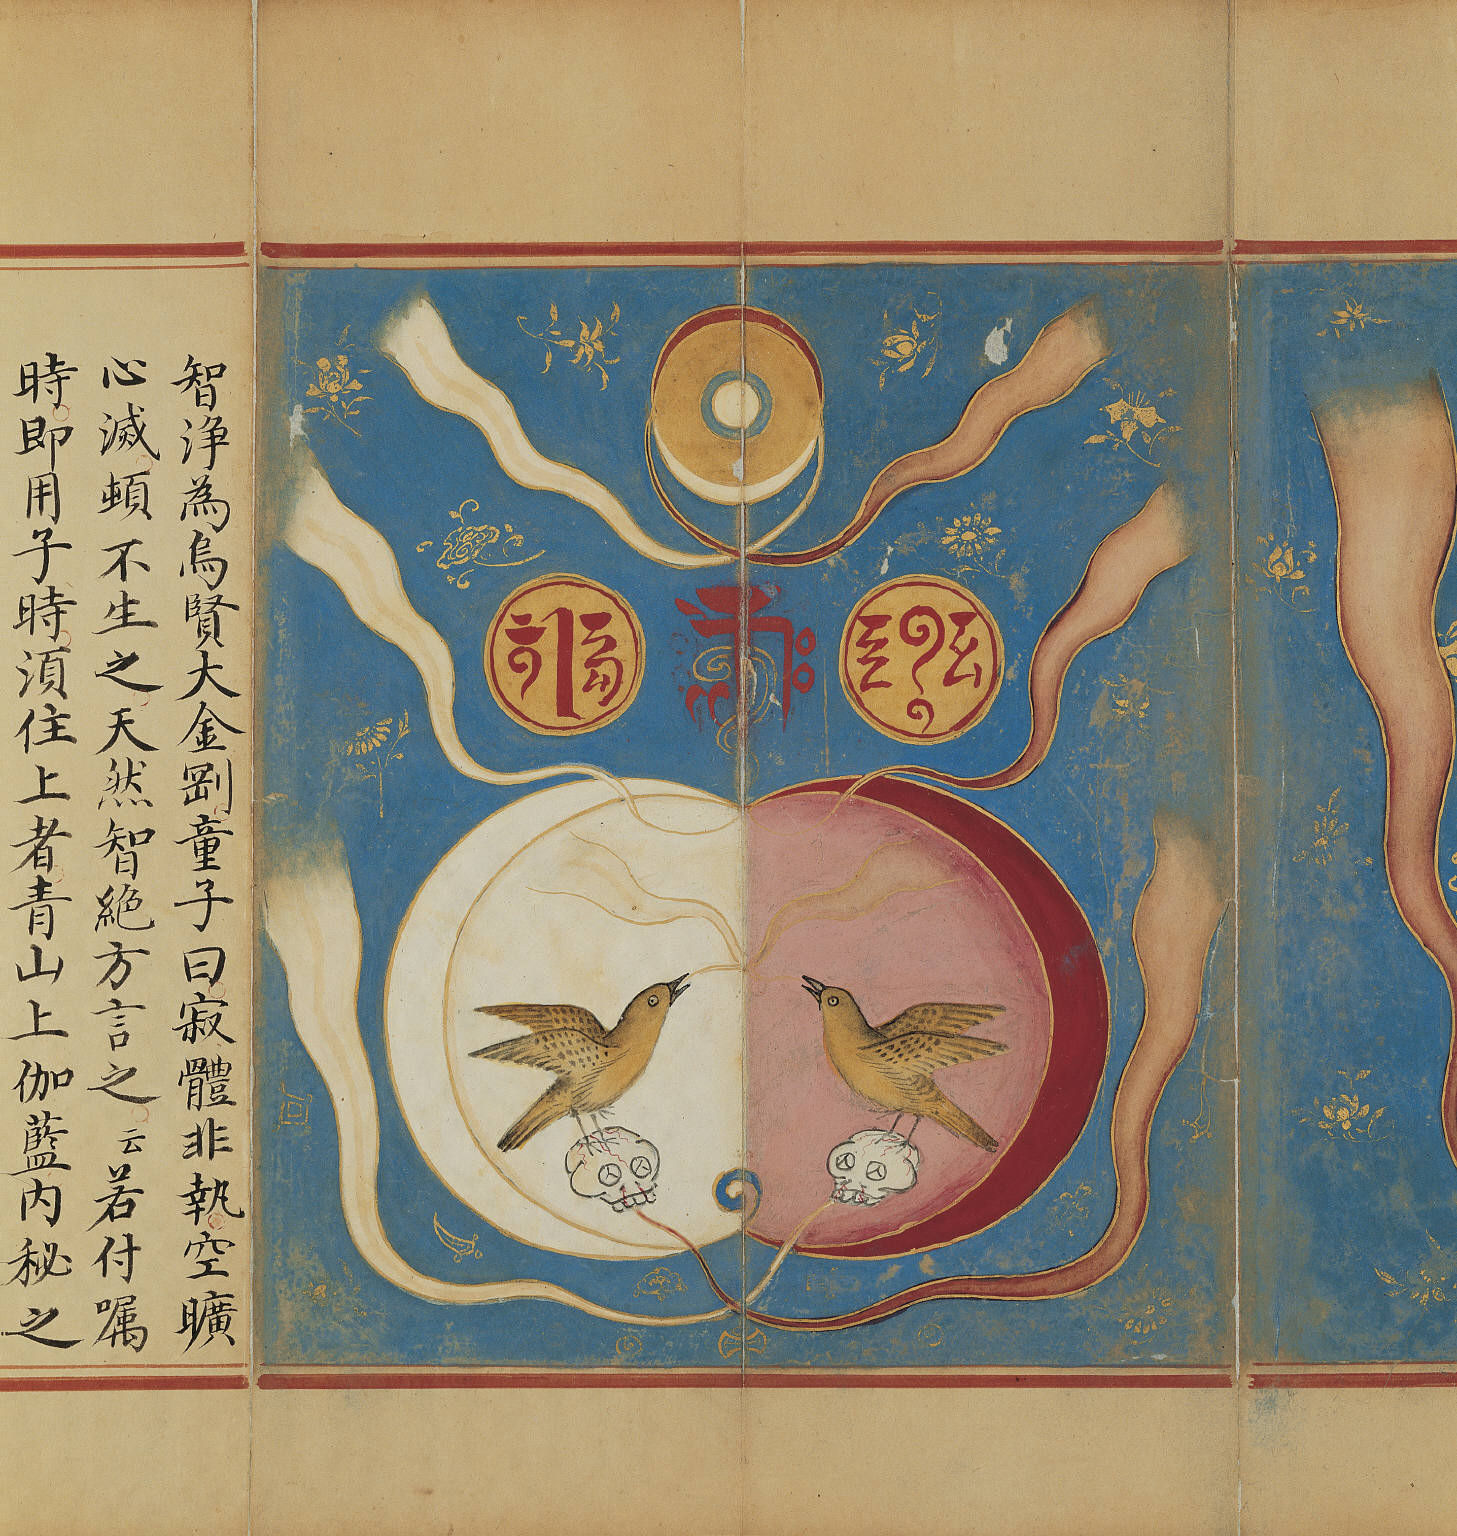 智淨為烏賢大金剛童子曰寂體非執空曠
心滅頓不生之天然智絶方言之云若付嘱
時即用子時湏住上者青山上伽藍内秘之